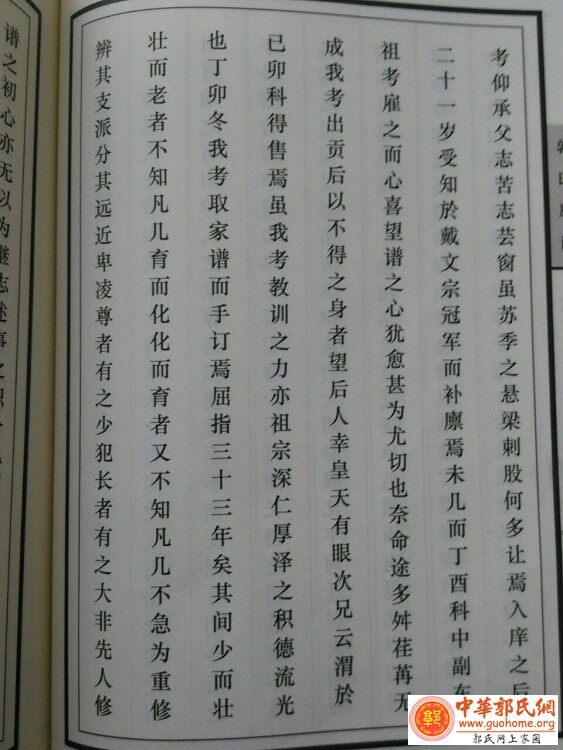 考仰承父志苦志芸窗虽苏季之悬梁刺股何多让焉入庠之后
二十一岁受知於戴文宗冠军而补廪焉未几而丁酉科中副车
祖考雇之而心喜望谱之心犹愈甚为尤切也奈命途多舛荏苒无
成我考出贡后以不得之身者望后人幸皇天有眼次兄云渭於
己卯科得售焉虽我考教训之力亦祖宗深仁厚泽之积德流光
也丁卯冬我考取家谱而手订焉屈指三十三年矣其间少而壮
壮而老者不知凡几育而化化而育者又不知凡几不急为重修
辨其支派分其远近卑凌尊者有之少犯长者有之大非先人修
谱之初心亦无以为继志述事之
中華郭氏網
www.guohome.org
郭氏网上家园